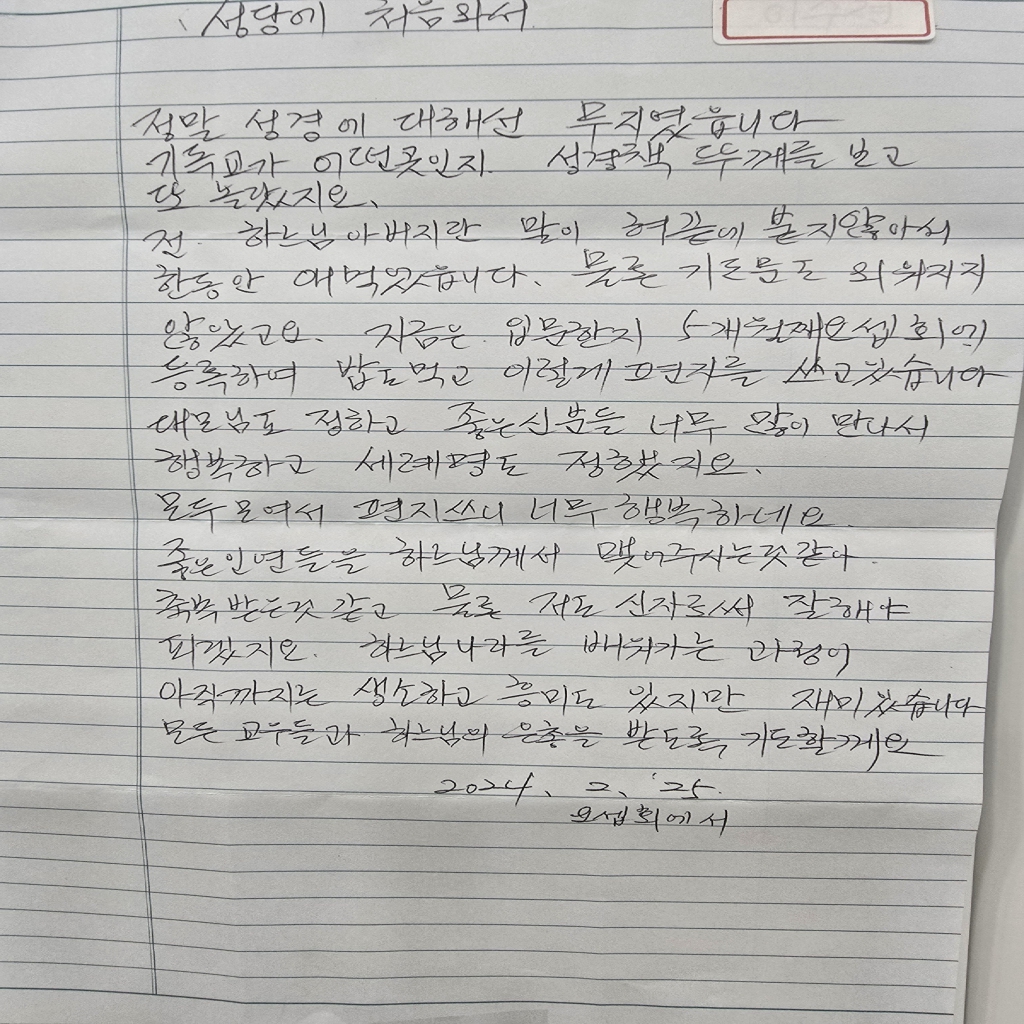 성당에 처음와서
정말 성경에 대해선 무지였습니다
기독교가 어떤곳인지. 성경책 두께를 보고
또 놀랐지요.
전. 하느님아버지란 말이 혀끝에 붙지않아서
한동안 애먹었습니다. 물론 기도문도 외워지지
않았고요. 지금은 입문한지 5개월째요셉회에
등록하여 밥도먹고 이렇게 편지를 쓰고있습니다
대모님도 정하고 좋은신분들 너무 많이 만나서
행복하고 세례명도 정했지요.
모두모여서 편지쓰니 너무행복하네요.
좋은인연들을 하느님께서 맺어주시는것같아
축복받는것 같고 물론 저도 신자로써 잘해야
되겠지요. 하느님나라를 배워가는 과정이
아직까지는 생소하고 흥미도 있지만 재미있습니다
모든 교우들과 하느님의 은총을 받도록 기도할게요
2024. 2. 25.
요셉회에서